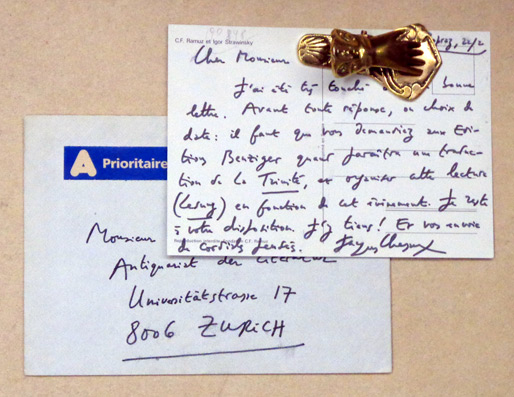 C.F. Ramuz et Igor Strawinsky
22/2
Cher Monsieur
J'ai été très touché bonne
lettre. Avant toute réponse, ou choix de
date: il faut que vous demandiez aux Edi-
tions Benziger quand paraîtra une traduc-
tion de La Trinité, et organiser cette lecture
(Lesung) en fonction de cet événement. Je reste
à votre disposition. J'y tiens! Et vous envoie
de cordiales pensées. Jacques Chessex
A Prioritaire
Monsieur
Antiquariat der Literatur
Universitätstrasse 17
8006 ZURICH